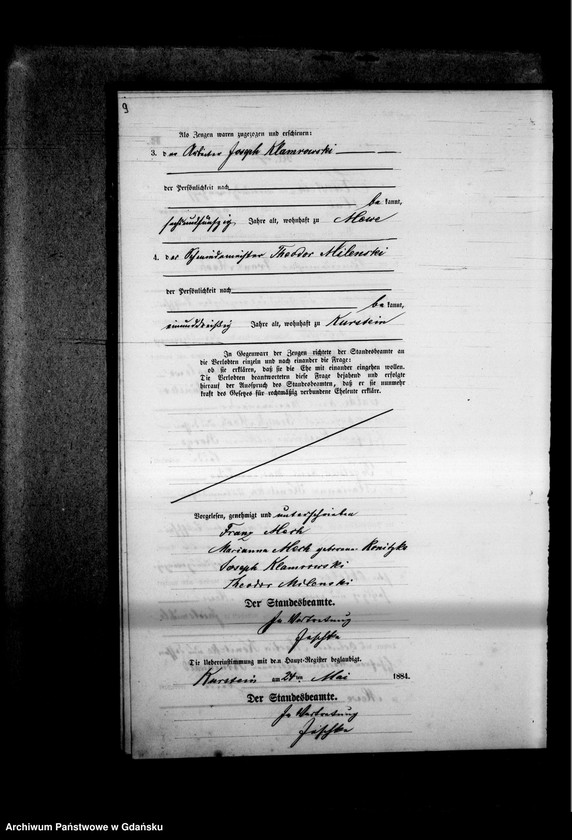 9
Als Zeugen waren zugezogen und erschienen:
3. der Arbeiter Joseph Klamrowski
der Persönlichkeit nach
be kannt,
sechsundfünfzig Jahre alt, wohnhaft zu Mewe
4. der Schmiedemeister Theodor Milenski
der Persönlichkeit nach
be kannt,
einunddreißig Jahre alt, wohnhaft zu Kurstein
In Gegenwart der Zeugen richtete der Standesbeamte an
die Verlobten einzeln und nach einander die Frage:
ob sie erklären, daß sie die Ehe mit einander eingehen wollen.
Die Verlobten beantworteten diese Frage bejahend und erfolgte
hierauf der Ausspruch des Standesbeamten, daß er sie nunmehr
kraft des Gesetzes für rechtmäßig verbundene Eheleute erkläre.
Vorgelesen, genehmigt und unterschrieben
Franz Mech
Marianna Mech geborene Konitzke
Joseph Klamrowski
Theodor Milenski
Der Standesbeamte.
In Vertretung
Jeschke
Die Uebereinstimmung mit dem Haupt-Register beglaubigt.
Kurstein am 24ten Mai 1884.
Der Standesbeamte.
In Vertretung
Jeschke
Archiwum Państwowe w Gdańsku